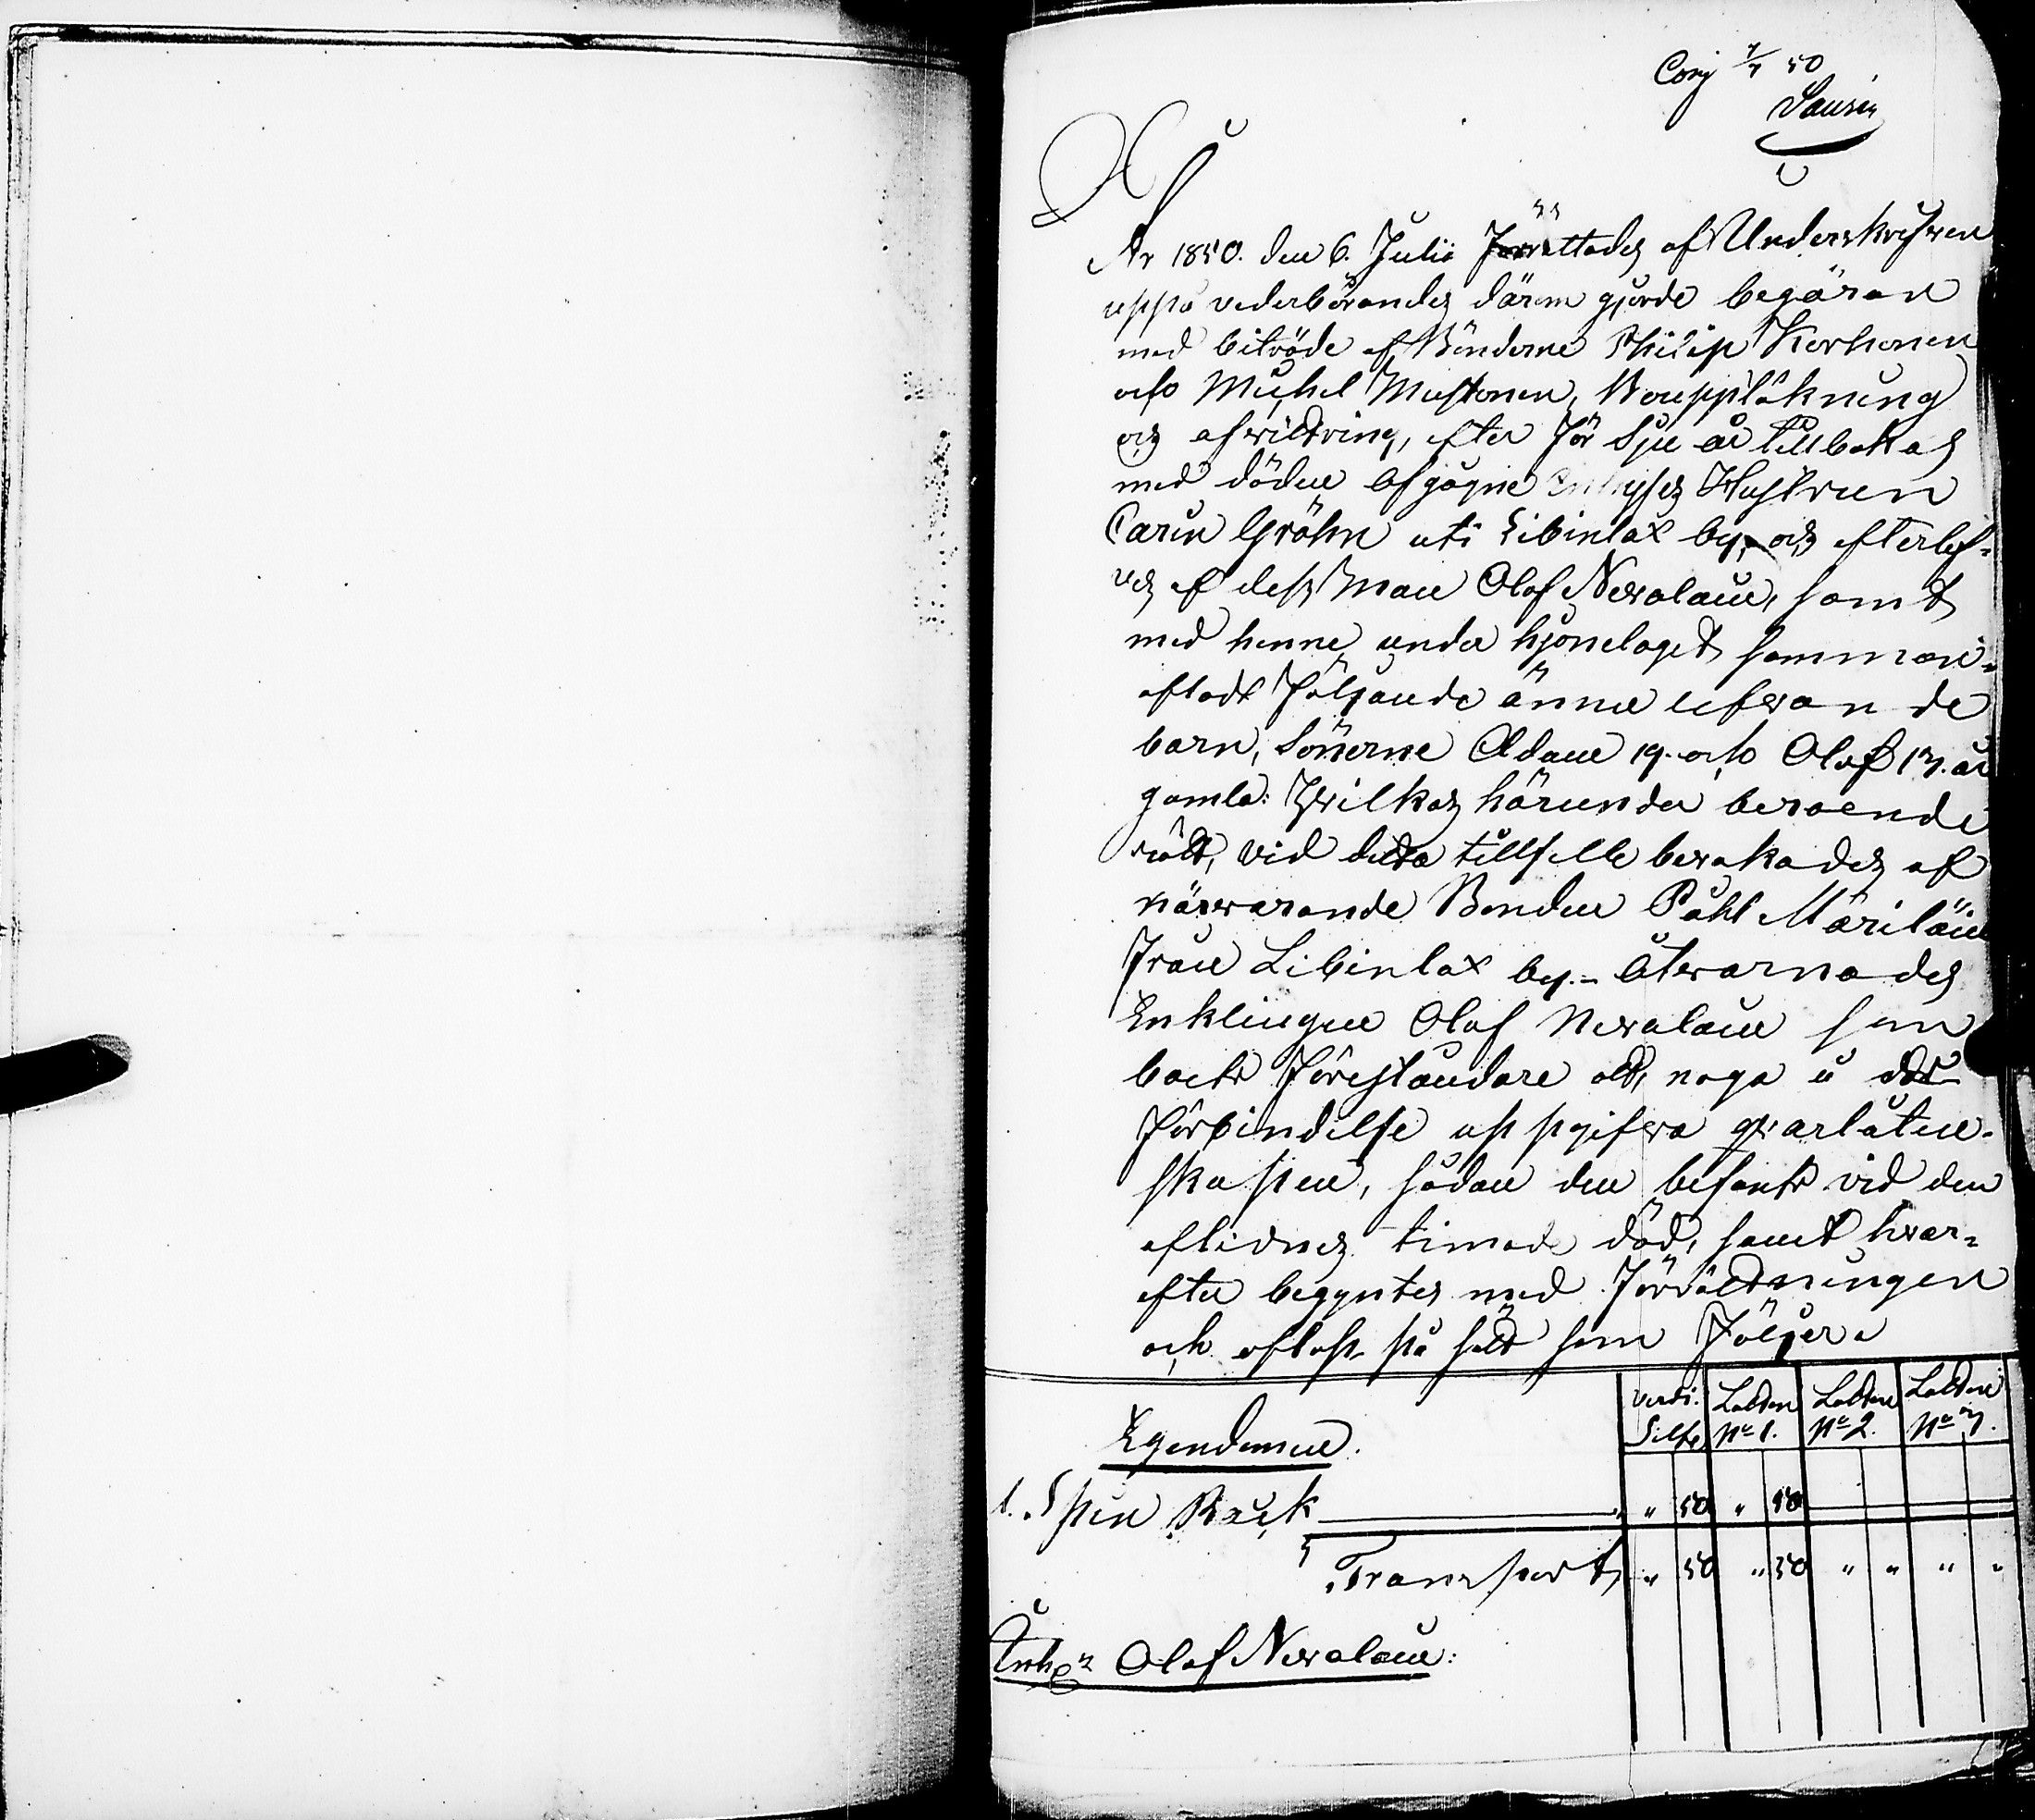 År 1850. den 6. Julii Förrättades af Underskrifven
uppå vederbörandes därom gjorde begäran
med biträde af Bönderne Philip Korhonen
och Michel Mustonen, Bouppläkning
och afvittring, efter för Sju år tillbakas
med döden afgågne Hustrun
Carin Gröhn uti Libinlax by, och efterlef-
des af dess Man Olof Nevalain, samt
med henne under hjonelaget samman-
aflade följande ännu lefvande
barn, Sönerne Adam 19. och Olof 17. år
gamla: Hvilkas härunder beroende
rätt, vid detta tillfelle bevakades af
närvarande Bonden Påhl Märiläin
från Libinlax by.- Åtvarnades
Enklingen Olof Nevalain som
boets Föreståndare att, noga å eds
förbindelse uppgifva qvarlåten-
skapen, sådan den befants vid den
aflidnes timade död, samt hvar-
efter begyntes med Förrättningen
och aflopp på sätt som Följer:
Värde. Lotten Lotten Lotten
Silfv. No 1. No 2. No 3.
Egendomen.
1. Spin Råck " 50 " 50
Transport, " 50 " 50 " " " "
Olof Nevalain: